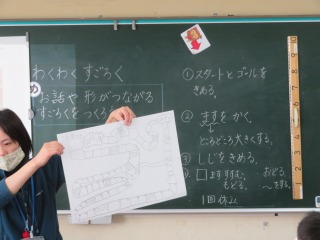 わくわくすごろく
め
お話や形がつながる
すごろくをつくろう
①スタートとゴールを
きめる。
②ますをかく。
ところどころ大きくする。
③しじをきめる。
□ますすすむ。
もどる。
おどる
〜をする。
1回休み
10